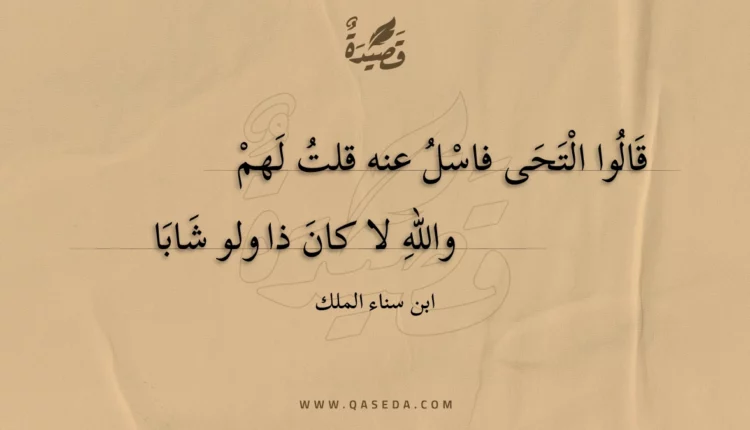 قَصِيدَةٌ
قَالُوا الْتَحَى فاسْلُ عنه قلتُ لَهمْ
واللهِ لا كانَ ذا ولو شَابَا
ابن سناء الملك
WWW.QASEDA.COM